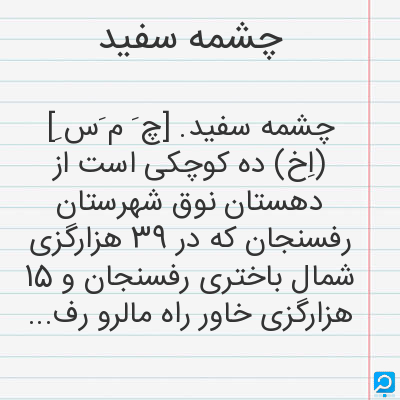 چشمه سفید
چشمه سفید. [چ َ م َ س ِ]
(اِخ) ده کوچکی است از
دهستان نوق شهرستان
رفسنجان که در ۳۹ هزارگزی
شمال باختری رفسنجان و ۱۵
هزارگزی خاور راه مالرو رف...